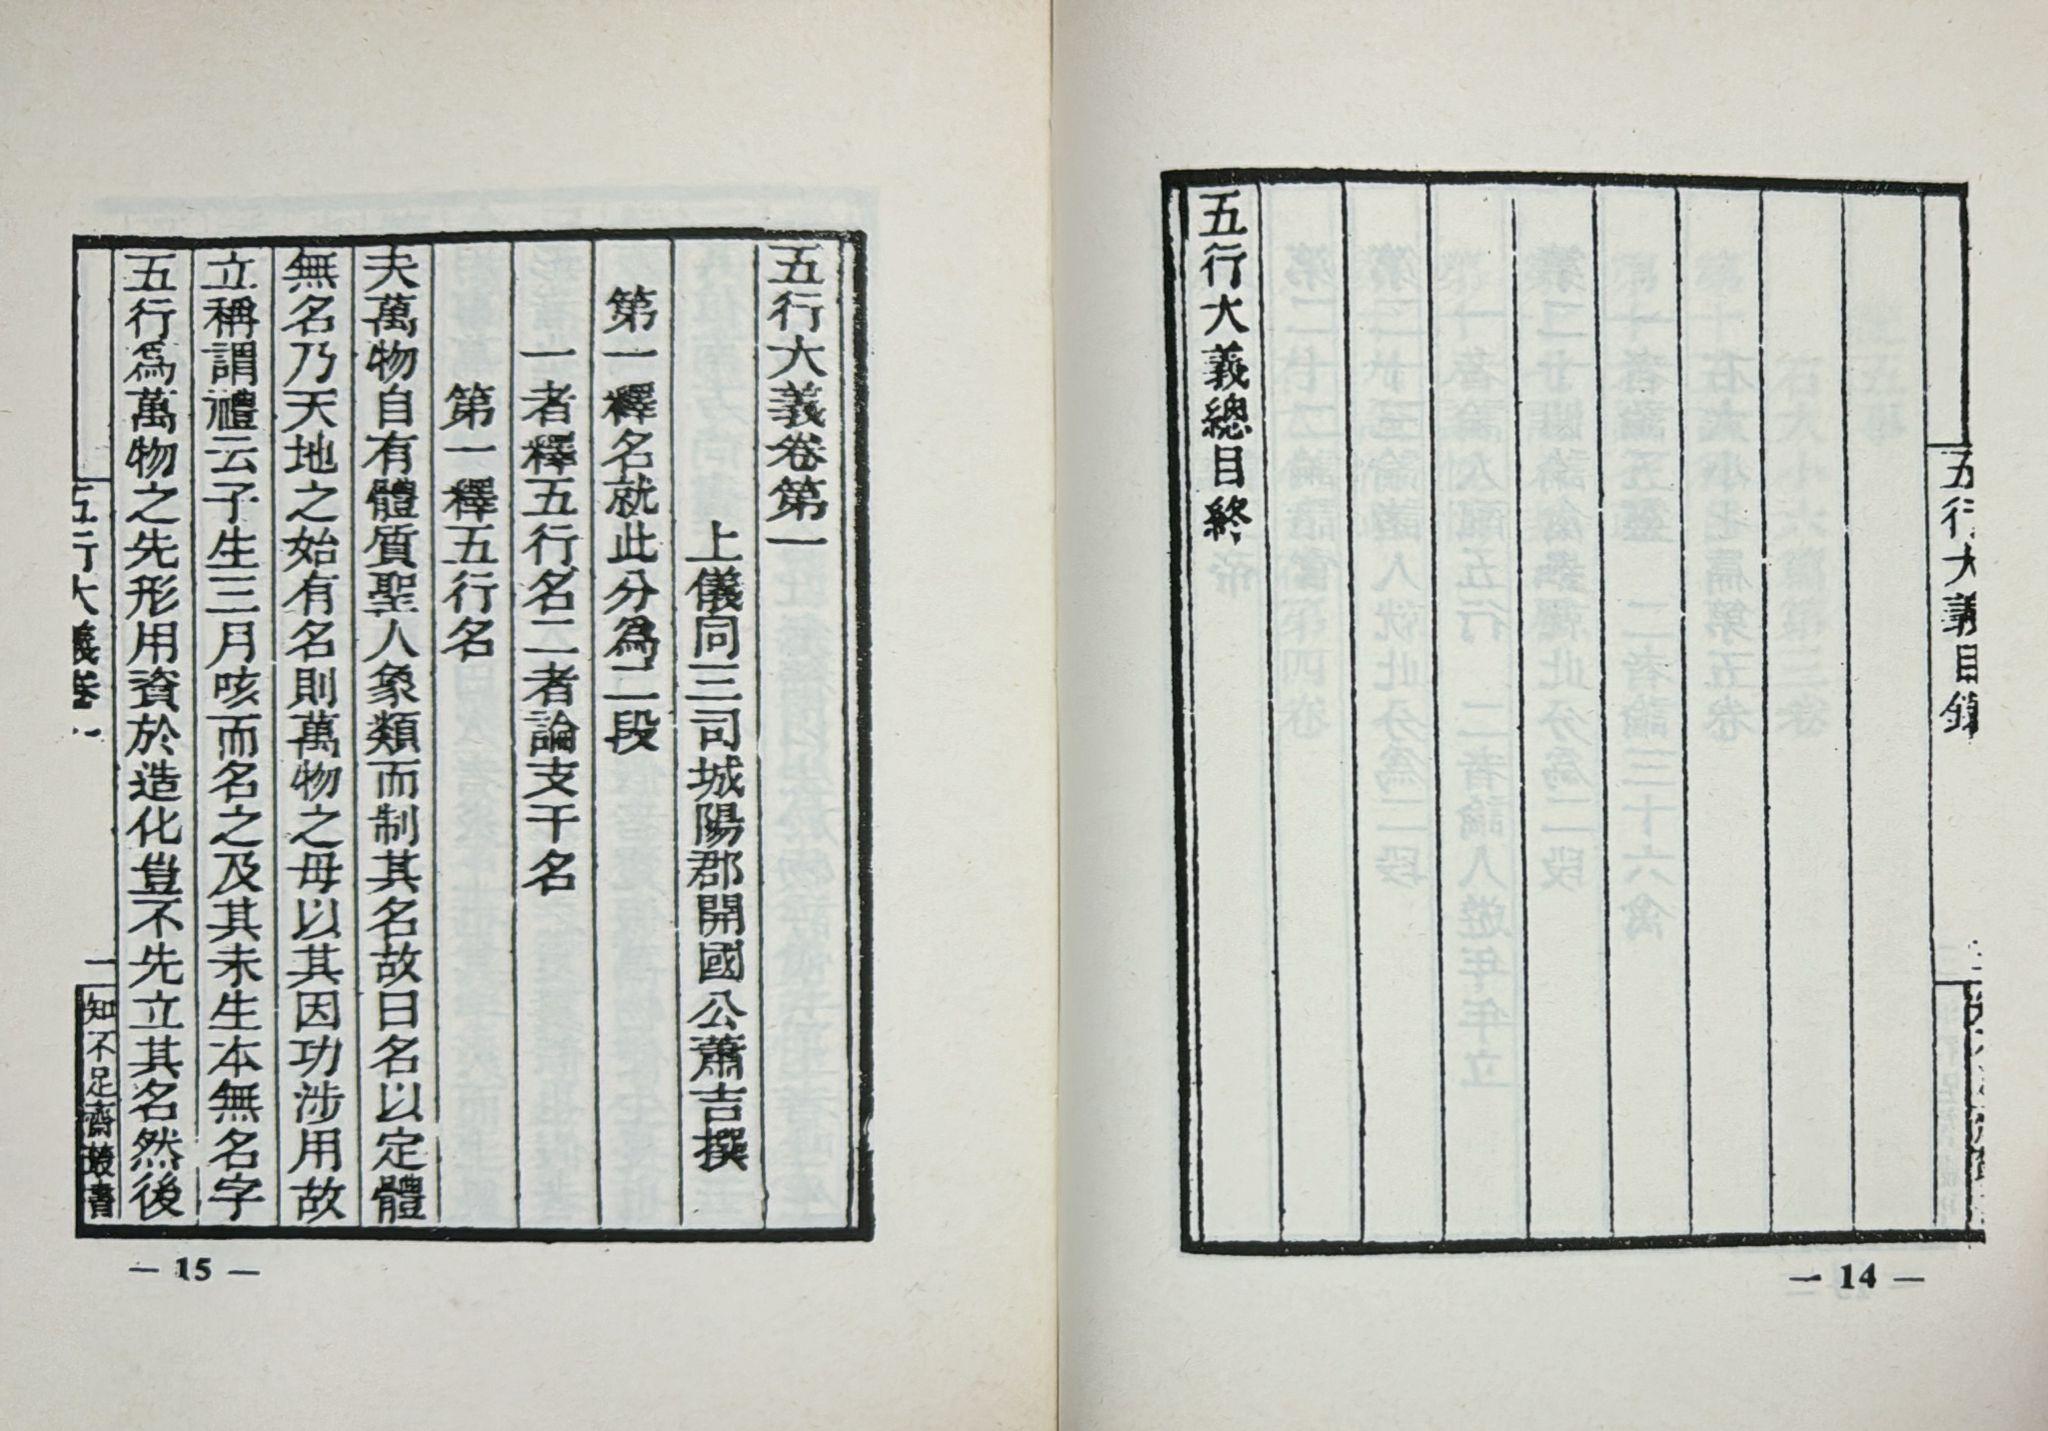 五行大義目錄
五行大義總目終
— 14 —
五行大義卷第一
上儀同三司城陽郡開國公蕭吉撰
第一釋名就此分爲二段
一者釋五行名二者論支干名
第一釋五行名
夫萬物自有體質聖人象類而制其名故曰名以定體
無名乃天地之始有名則萬物之母以其因功涉用故
立稱謂禮云子生三月咳而名之及其未生本無名字
五行爲萬物之先形用資於造化豈不先立其名然後
五行大義卷一
一
知不足齋叢書
— 15 —